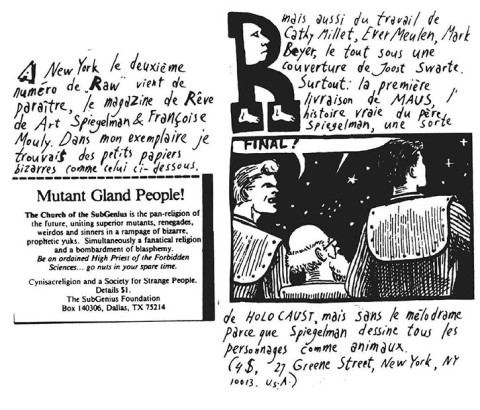 A New York le deuxième
numéro de „Raw” vient de
paraître, le magazine de Rêve
de Art Spiegelman & Françoise
Mouly. Dans mon exemplaire je
trouvais des petits papiers
bizarres comme celui ci-dessous.
Mutant Gland People!
The Church of the SubGenius is the pan-religion of
the future, uniting superior mutants, renegades,
weirdos and sinners in a rampage of bizarre,
prophetic yuks. Simultaneously a fanatical religion
and a bombardment of blasphemy.
Be an ordained High Priest of the Forbidden
Sciences... go nuts in your spare time.
Cynisacreligion and a Society for Strange People.
Details $1.
The SubGenius Foundation
Box 140306, Dallas, TX 75214
R
mais aussi du travail de
Cathy Millet, Ever Meulen, Mark
Beyer, le tout sous une
couverture de Joost Swarte.
Surtout: la première
livraison de MAUS, l'
histoire vraie du père
Spiegelman, une sorte
FINAL?
de HOLOCAUST, mais sans le mélodrame
parce que Spiegelman dessine tous les
personnages comme animaux.
(4$, 27 Greene Street, New York, NY
10013. U.S.A.)